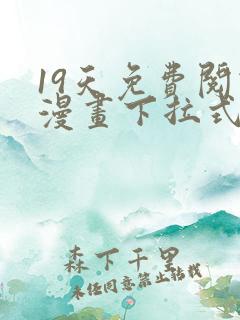 19天免費閱
漫畫下拉式
森下千里
未经同意禁止转载